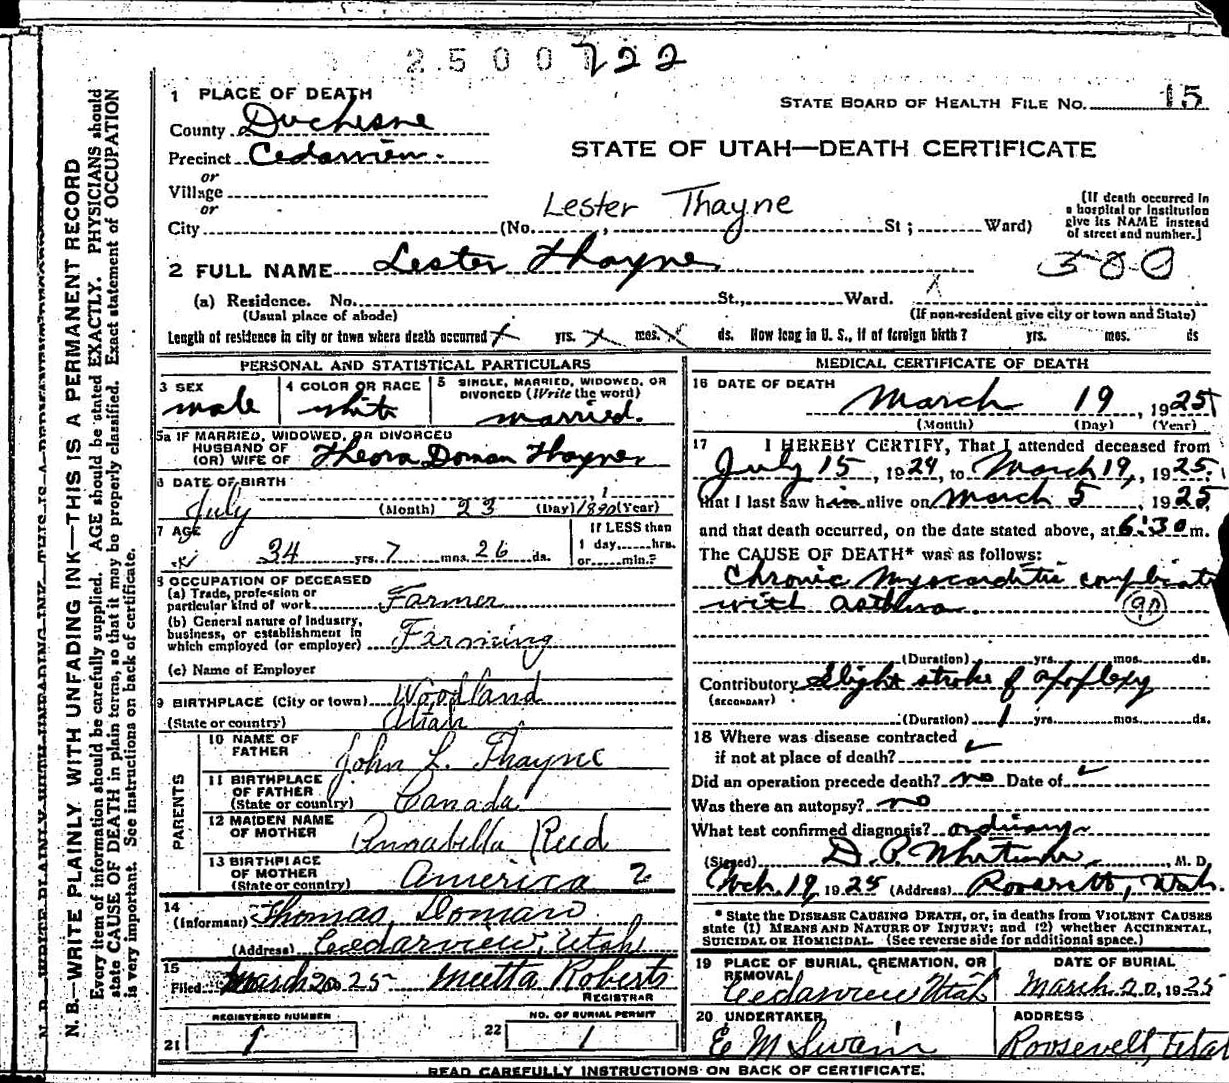 2500722
1 PLACE OF DEATH
STATE BOARD OF HEALTH FILE NO. 15
County Duchesne
Precinct Cedarview.
STATE OF UTAH—DEATH CERTIFICATE
or
Village
or
City (No. , St ; Ward)
Lester Thayne
[If death occurred in
a hospital or institution
give its NAME instead
of street and number.]
2 FULL NAME Lester Thayne
300
(a) Residence. No. St., Ward.
(Usual place of abode)
(If non-resident give city or town and State)
Length of residence in city or town where death occurred X yrs. X mos. X ds. How long in U. S., if of foreign birth ? yrs. mos. ds
PERSONAL AND STATISTICAL PARTICULARS
3 SEX
male
4 COLOR OR RACE
white
5 SINGLE, MARRIED, WIDOWED, OR
DIVORCED (Write the word)
married.
5a IF MARRIED, WIDOWED, OR DIVORCED
HUSBAND OF
(OR) WIFE OF Theora Doman Thayne
6 DATE OF BIRTH
July (Month) 23 (Day) 1890 (Year)
7 AGE
34 yrs. 7 mos. 26 ds.
If LESS than
1 day, hrs.
or min.?
8 OCCUPATION OF DECEASED
(a) Trade, profession or
particular kind of work Farmer
(b) General nature of industry,
business, or establishment in
which employed (or employer) Farming
(c) Name of Employer
9 BIRTHPLACE (City or town) Woodland
(State or country) Utah
PARENTS
10 NAME OF
FATHER John L. Thayne
11 BIRTHPLACE
OF FATHER
(State or country) Canada
12 MAIDEN NAME
OF MOTHER Annabella Reed
13 BIRTHPLACE
OF MOTHER
(State or country) America 2
14
(Informant) Thomas Doman
(Address) Cedarview, Utah
15
Filed March 20 25 Meetta Roberts
REGISTRAR
REGISTERED NUMBER
21 1
NO. OF BURIAL PERMIT
22 1
MEDICAL CERTIFICATE OF DEATH
16 DATE OF DEATH
March 19, 1925
(Month) (Day) (Year)
17 I HEREBY CERTIFY, That I attended deceased from
July 15, 1924, to March 19, 1925,
that I last saw him alive on March 5, 1925
and that death occurred, on the date stated above, at 6:30 m.
The CAUSE OF DEATH* was as follows:
Chronic Myocarditis complicate
with asthma. (90)
(Duration) yrs. mos. ds.
Contributory Slight stroke of apoplexy
(SECONDARY)
(Duration) 1 yrs. mos. ds.
18 Where was disease contracted
if not at place of death?
Did an operation precede death? no Date of
Was there an autopsy? no
What test confirmed diagnosis? ordinary
(Signed) D. P. Whitmore, M. D.
Mch. 19, 1925 (Address) Roosevelt, Utah.
* State the DISEASE CAUSING DEATH, or, in deaths from VIOLENT CAUSES
state (1) MEANS AND NATURE OF INJURY; and (2) whether ACCIDENTAL,
SUICIDAL OR HOMICIDAL. (See reverse side for additional space.)
19 PLACE OF BURIAL, CREMATION, OR
REMOVAL
Cedarview Utah
DATE OF BURIAL
March 20, 1925
20 UNDERTAKER
E M Swain
ADDRESS
Roosevelt, Utah
READ CAREFULLY INSTRUCTIONS ON BACK OF CERTIFICATE.
N. B.—WRITE PLAINLY WITH UNFADING INK—THIS IS A PERMANENT RECORD
Every item of information should be carefully supplied. AGE should be stated EXACTLY. PHYSICIANS should
state CAUSE OF DEATH in plain terms, so that it may be properly classified. Exact statement of OCCUPATION
is very important. See instructions on back of certificate.